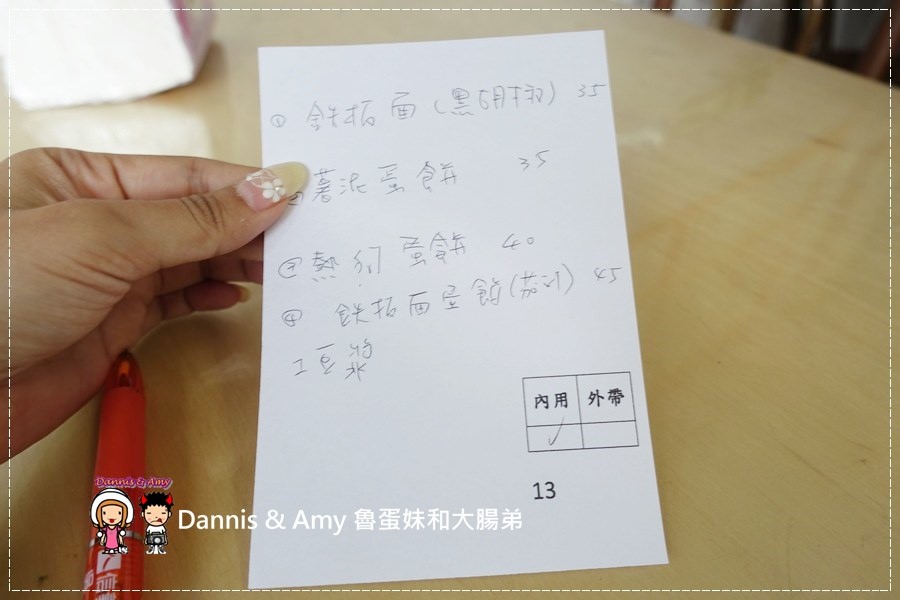 ① 鉄板面(黑胡椒) 35
② 薯泥蛋餅 35
③ 熱狗蛋餅 40
④ 鉄板面 (茄汁) 45
1豆漿
內用 外帶
✓
13
Dannis & Amy
Dannis & Amy 魯蛋妹和大腸弟